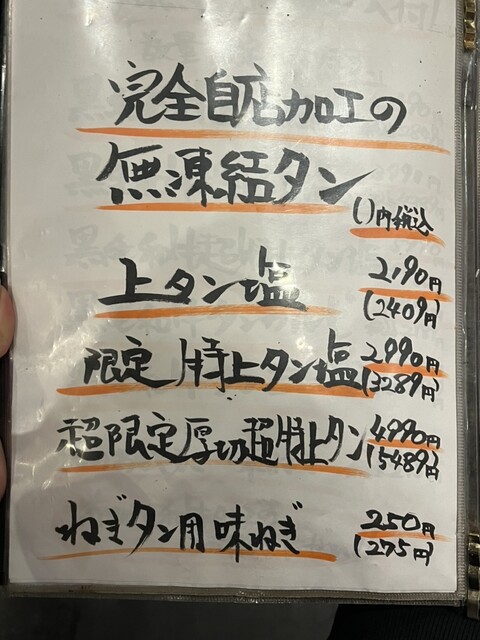 完全自店加工の
無凍結タン
()内税込
上タン塩 2,190円
(2409円)
限定 特上タン塩 2990円
(3289円)
超限定厚切超特上タン 4990円
(5489円)
ねぎタン用味ねぎ 250円
(275円)